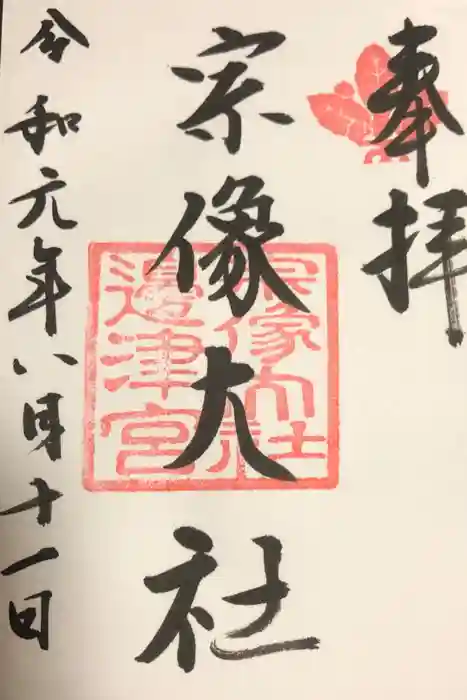 奉拝
宗像大社
宗像大社
邉津宮
令和元年八月十一日